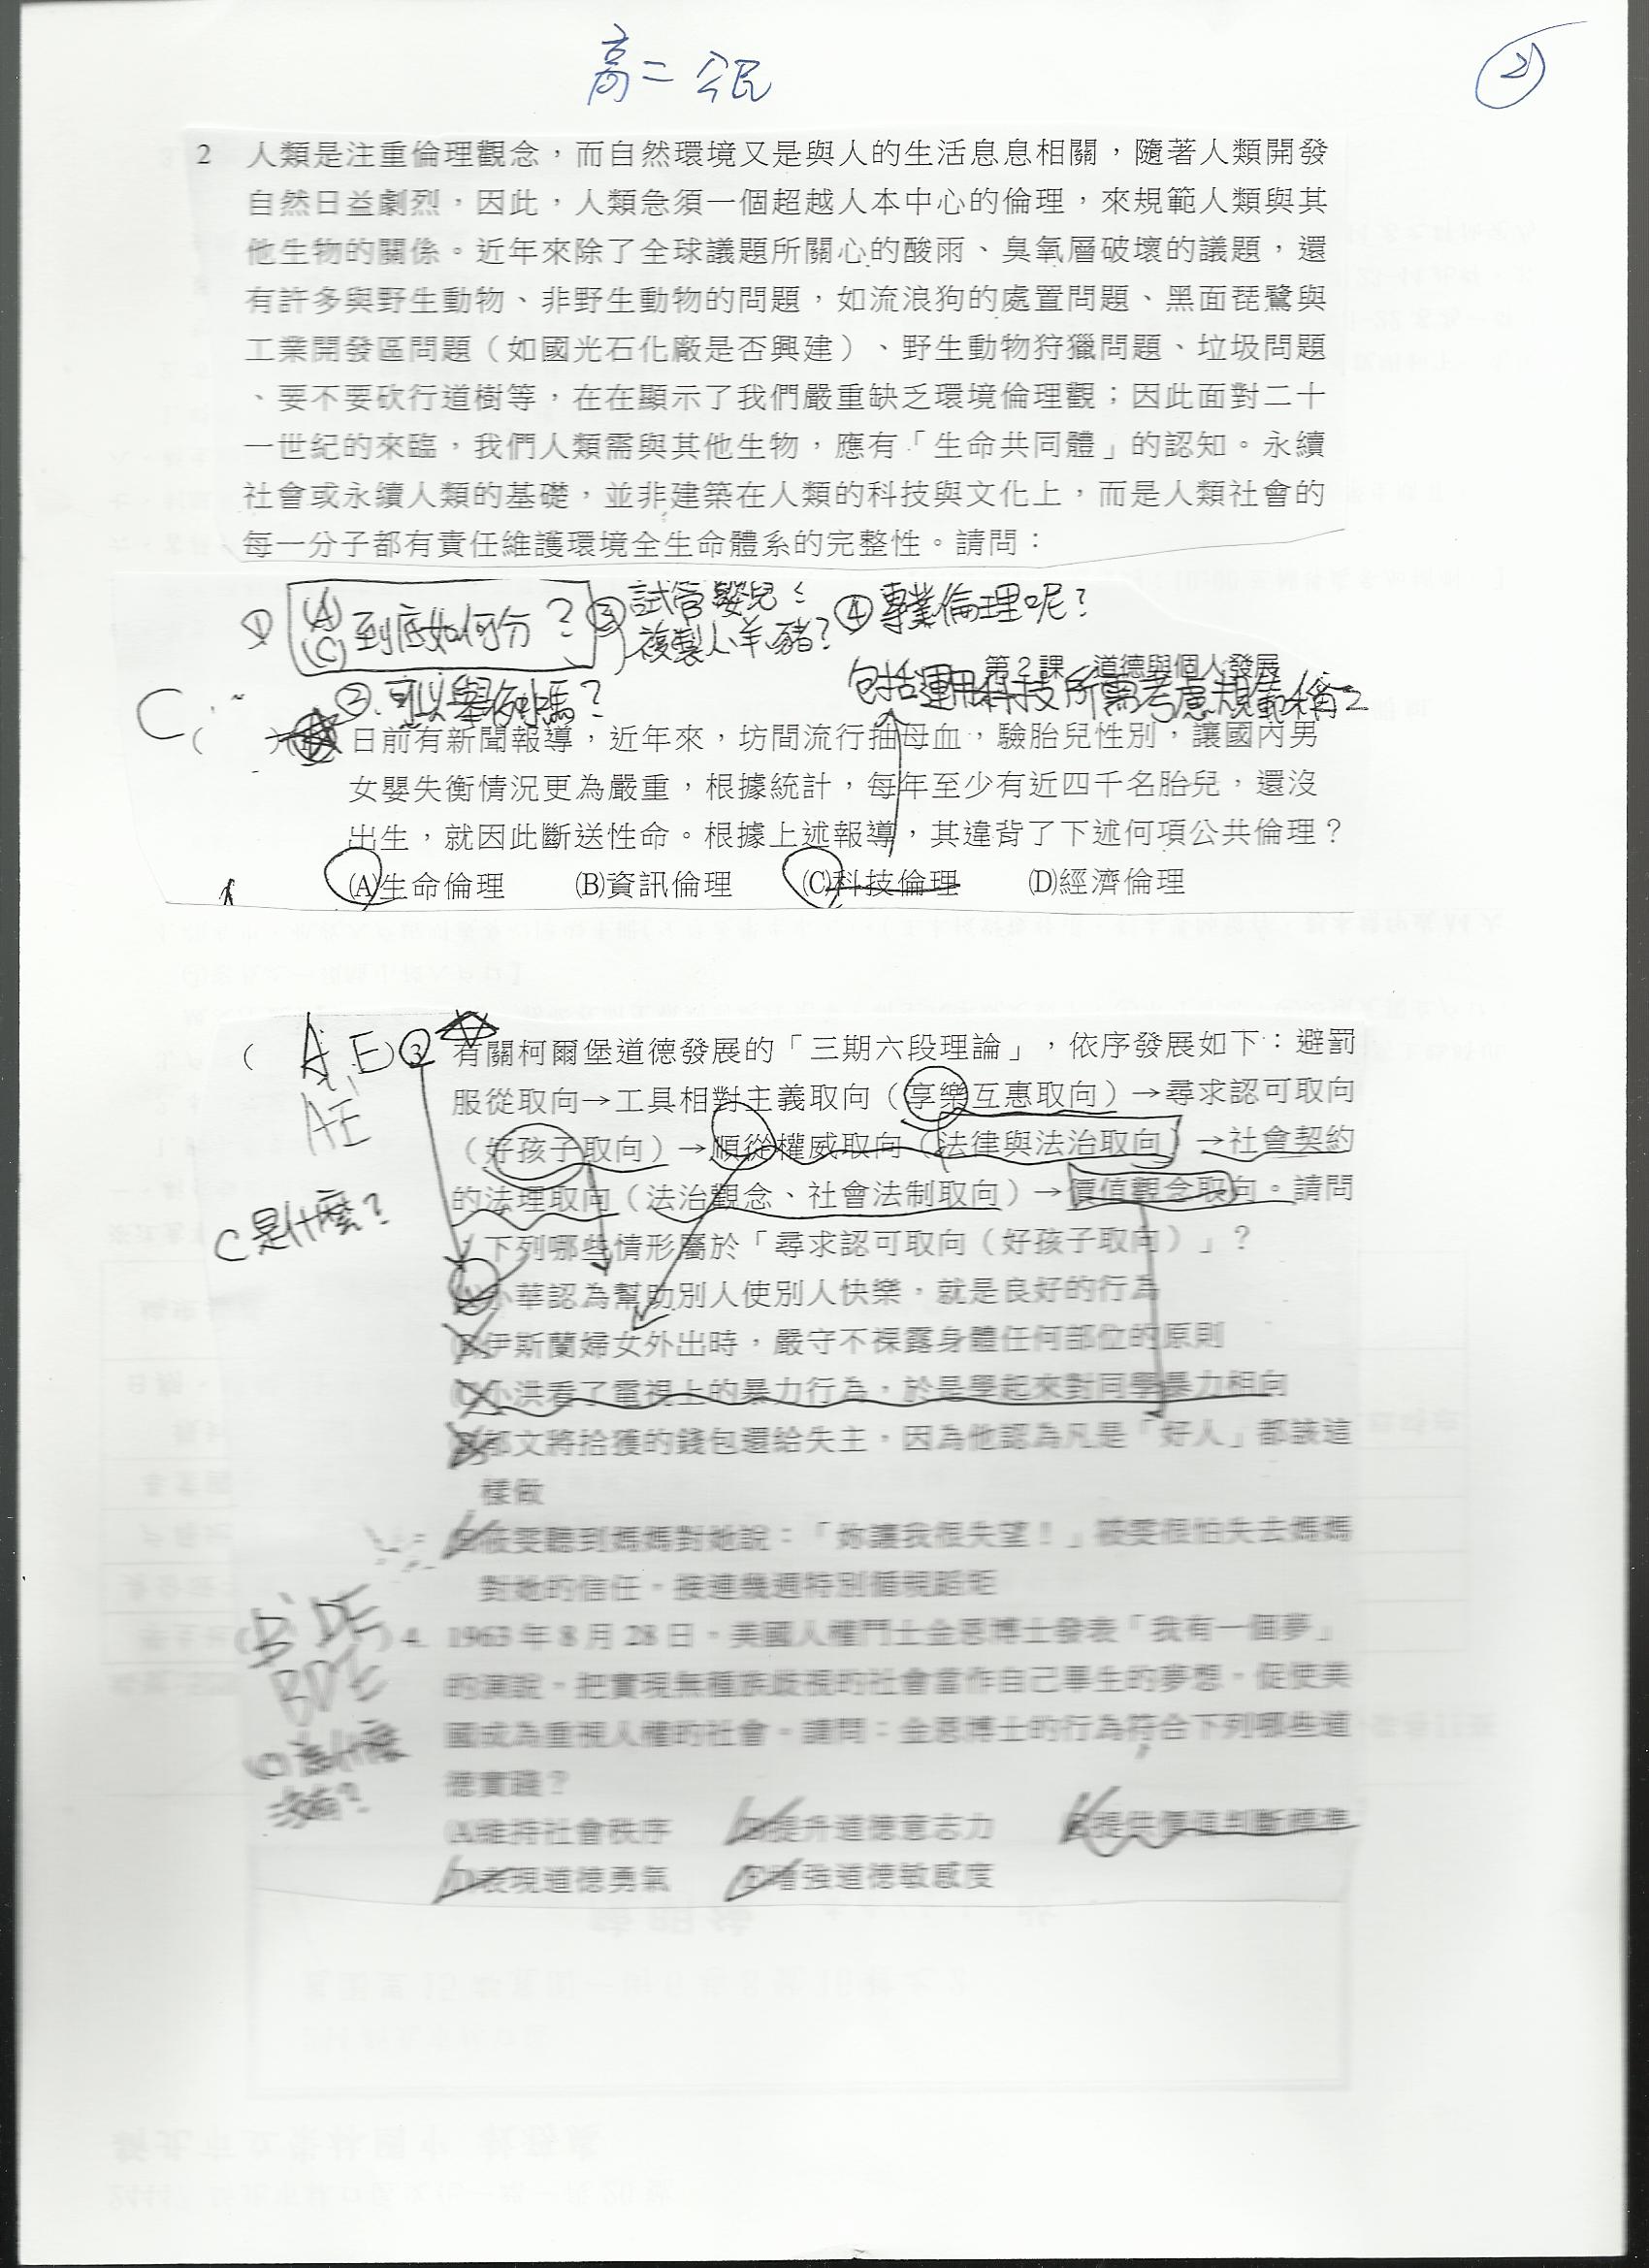 高二 公民
2
2 人類是注重倫理觀念，而自然環境又是與人的生活息息相關，隨著人類開發
自然日益劇烈，因此，人類急須一個超越人本中心的倫理，來規範人類與其
他生物的關係。近年來除了全球議題所關心的酸雨、臭氧層破壞的議題，還
有許多與野生動物、非野生動物的問題，如流浪狗的處置問題、黑面琵鷺與
工業開發區問題（如國光石化廠是否興建）、野生動物狩獵問題、垃圾問題
、要不要砍行道樹等，在在顯示了我們嚴重缺乏環境倫理觀；因此面對二十
一世紀的來臨，我們人類需與其他生物，應有「生命共同體」的認知。永續
社會或永續人類的基礎，並非建築在人類的科技與文化上，而是人類社會的
每一分子都有責任維護環境全生命體系的完整性。請問：
① (A) (C) 到底如何分？ ③ 試管嬰兒、 ④ 專業倫理呢？
複製人、羊、豬？
第2課 道德與個人發展
② 可以舉例嗎？ 包括運用科技所需考慮規範稱之
C
( 日前有新聞報導，近年來，坊間流行抽母血，驗胎兒性別，讓國內男
女嬰失衡情況更為嚴重，根據統計，每年至少有近四千名胎兒，還沒
出生，就因此斷送性命。根據上述報導，其違背了下述何項公共倫理？
(A)生命倫理 (B)資訊倫理 (C)科技倫理 (D)經濟倫理
( AE ) 3 有關柯爾堡道德發展的「三期六段理論」，依序發展如下：避罰
服從取向→工具相對主義取向（享樂互惠取向）→尋求認可取向
AE
（好孩子取向）→順從權威取向（法律與法治取向）→社會契約
的法理取向（法治觀念、社會法制取向）→價值觀念取向。請問
C是什麼？
下列哪些情形屬於「尋求認可取向（好孩子取向）」？
(A)小華認為幫助別人使別人快樂，就是良好的行為
(B)伊斯蘭婦女外出時，嚴守不裸露身體任何部位的原則
(C)小洪看了電視上的暴力行為，於是學起來對同學暴力相向
(D)郁文將拾獲的錢包還給失主，因為他認為凡是「好人」都該這
樣做
(E)筱雯聽到媽媽對她說：「妳讓我很失望！」筱雯很怕失去媽媽
對她的信任，接連幾週特別循規蹈矩
( B DE ) 4. 1963 年 8 月 28 日，美國人權鬥士金恩博士發表「我有一個夢」
BDE
的演說，把實現無種族歧視的社會當作自己畢生的夢想，促使美
國成為重視人權的社會。請問：金恩博士的行為符合下列哪些道
德實踐？
(C)為什麼
沒有？
(A)維持社會秩序 (B)提升道德意志力 (C)提供價值判斷標準
(D)表現道德勇氣 (E)增強道德敏感度